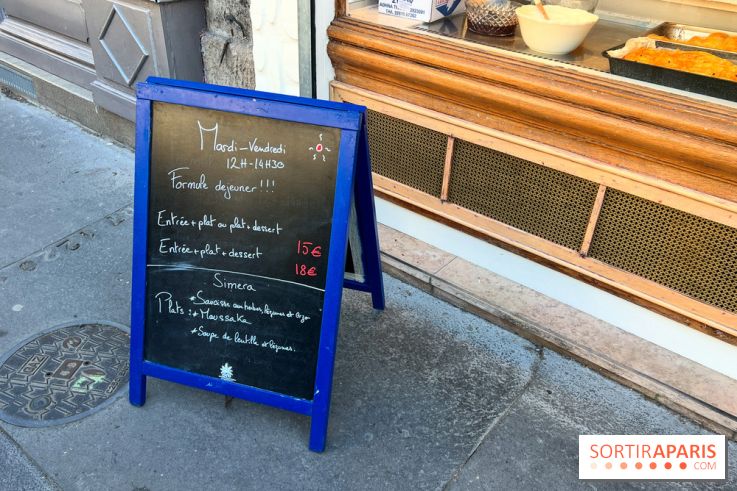 Mardi-Vendredi
12H-14H30
Formule dejeuner!!!
Entrée+plat ou plat+dessert
15€
Entrée+plat+dessert
18€
Simera
Plats: *Saucisse aux herbes, légumes et
*Moussaka
*Soupe de lentille et légumes.
SORTIRAPARIS
.COM